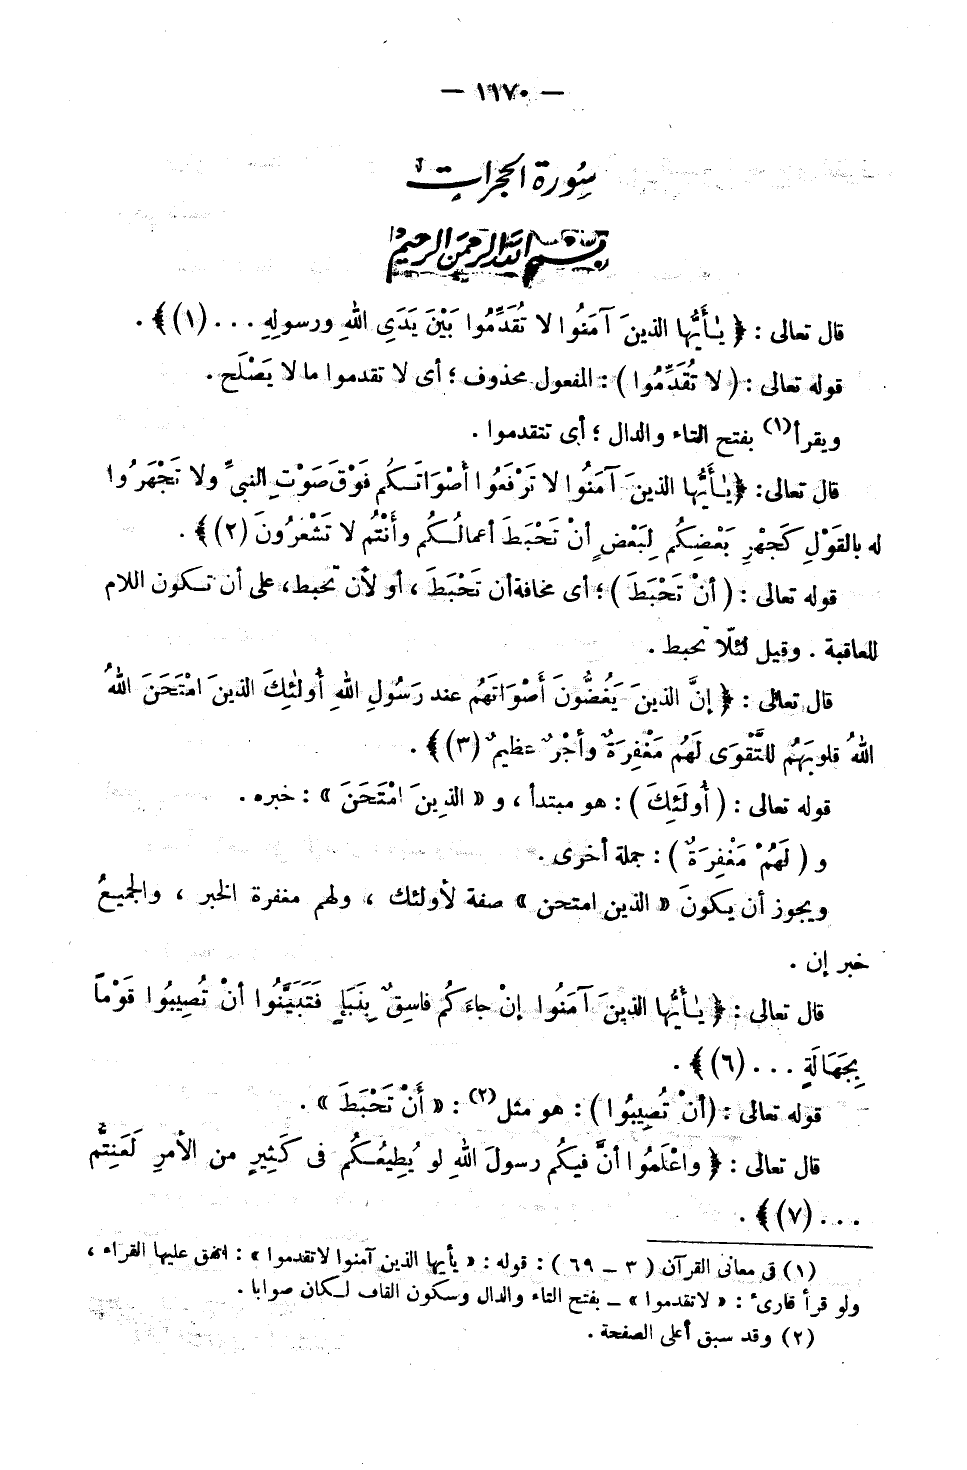 — ١١٧٠ —
سُورة الحجرات
بسم الله الرحمن الرحيم
قال تعالى : ﴿ يٰأَيُّها الذينَ آمَنُوا لا تُقَدِّمُوا بَيْنَ يَدَيِ اللهِ ورسولِهِ ... (١) ﴾ .
قوله تعالى : ( لا تُقَدِّمُوا ) : المفعول محذوف ؛ أى لا تقدموا ما لا يَصْلَح .
ويقرأ(١) بفتح التاء والدال ؛ أى تتقدموا .
قال تعالى : ﴿ يٰأَيُّها الذينَ آمَنُوا لا تَرْفَعُوا أَصْوَاتَكُم فَوْقَ صَوْتِ النبىِّ ولا تَجْهَرُوا
له بالقَوْلِ كَجَهْرِ بَعْضِكُم لِبَعْضٍ أنْ تَحْبَطَ أعمالُكُم وأَنْتُم لا تَشْعُرُونَ (٢) ﴾ .
قوله تعالى : ( أنْ تَحْبَطَ ) ؛ أى مخافة أن تَحْبَطَ ، أو لأن تحبط، على أن تكون اللام
للعاقبة . وقيل لئلّا تحبط .
قال تعالى : ﴿ إنَّ الذينَ يَغُضُّونَ أَصْوَاتَهُم عند رَسُولِ اللهِ أُولٰئِكَ الذينَ امْتَحَنَ اللهُ
اللهُ قلوبَهُم للتَّقْوَى لَهُم مَغْفِرَةٌ وأجْرٌ عظيمٌ (٣) ﴾ .
قوله تعالى : ( أُولَئِكَ ) : هو مبتدأ ، و « الذِينَ امْتَحَنَ » : خبره .
و ( لَهُمْ مَغْفِرَةٌ ) : جملة أخرى .
ويجوز أن يكونَ « الذين امتحن » صفة لأولئك ، ولهم مغفرة الخبر ، والجميعُ
خبر إن .
قال تعالى : ﴿ يٰأَيُّها الذينَ آمَنُوا إنْ جاءَكُم فاسِقٌ بِنَبَإٍ فَتَبَيَّنُوا أنْ تُصِيبُوا قَوْماً
بِجَهَالَةٍ ... (٦) ﴾ .
قوله تعالى : (أنْ تُصِيبُوا ) : هو مثل(٢) : « أَنْ تَحْبَطَ » .
قال تعالى : ﴿ واعْلَمُوا أنَّ فيكُم رسولَ اللهِ لو يُطِيعُكُم فى كَثِيرٍ من الأمرِ لَعَنِتُّم
... (٧) ﴾ .
(١) فى معانى القرآن ( ٣ – ٦٩ ) : قوله : « يأيها الذين آمنوا لاتقدموا » : اتفق عليها القراء ،
ولو قرأ قارئ : « لاتقدموا » – بفتح التاء والدال وسكون القاف لكان صوابا .
(٢) وقد سبق أعلى الصفحة .